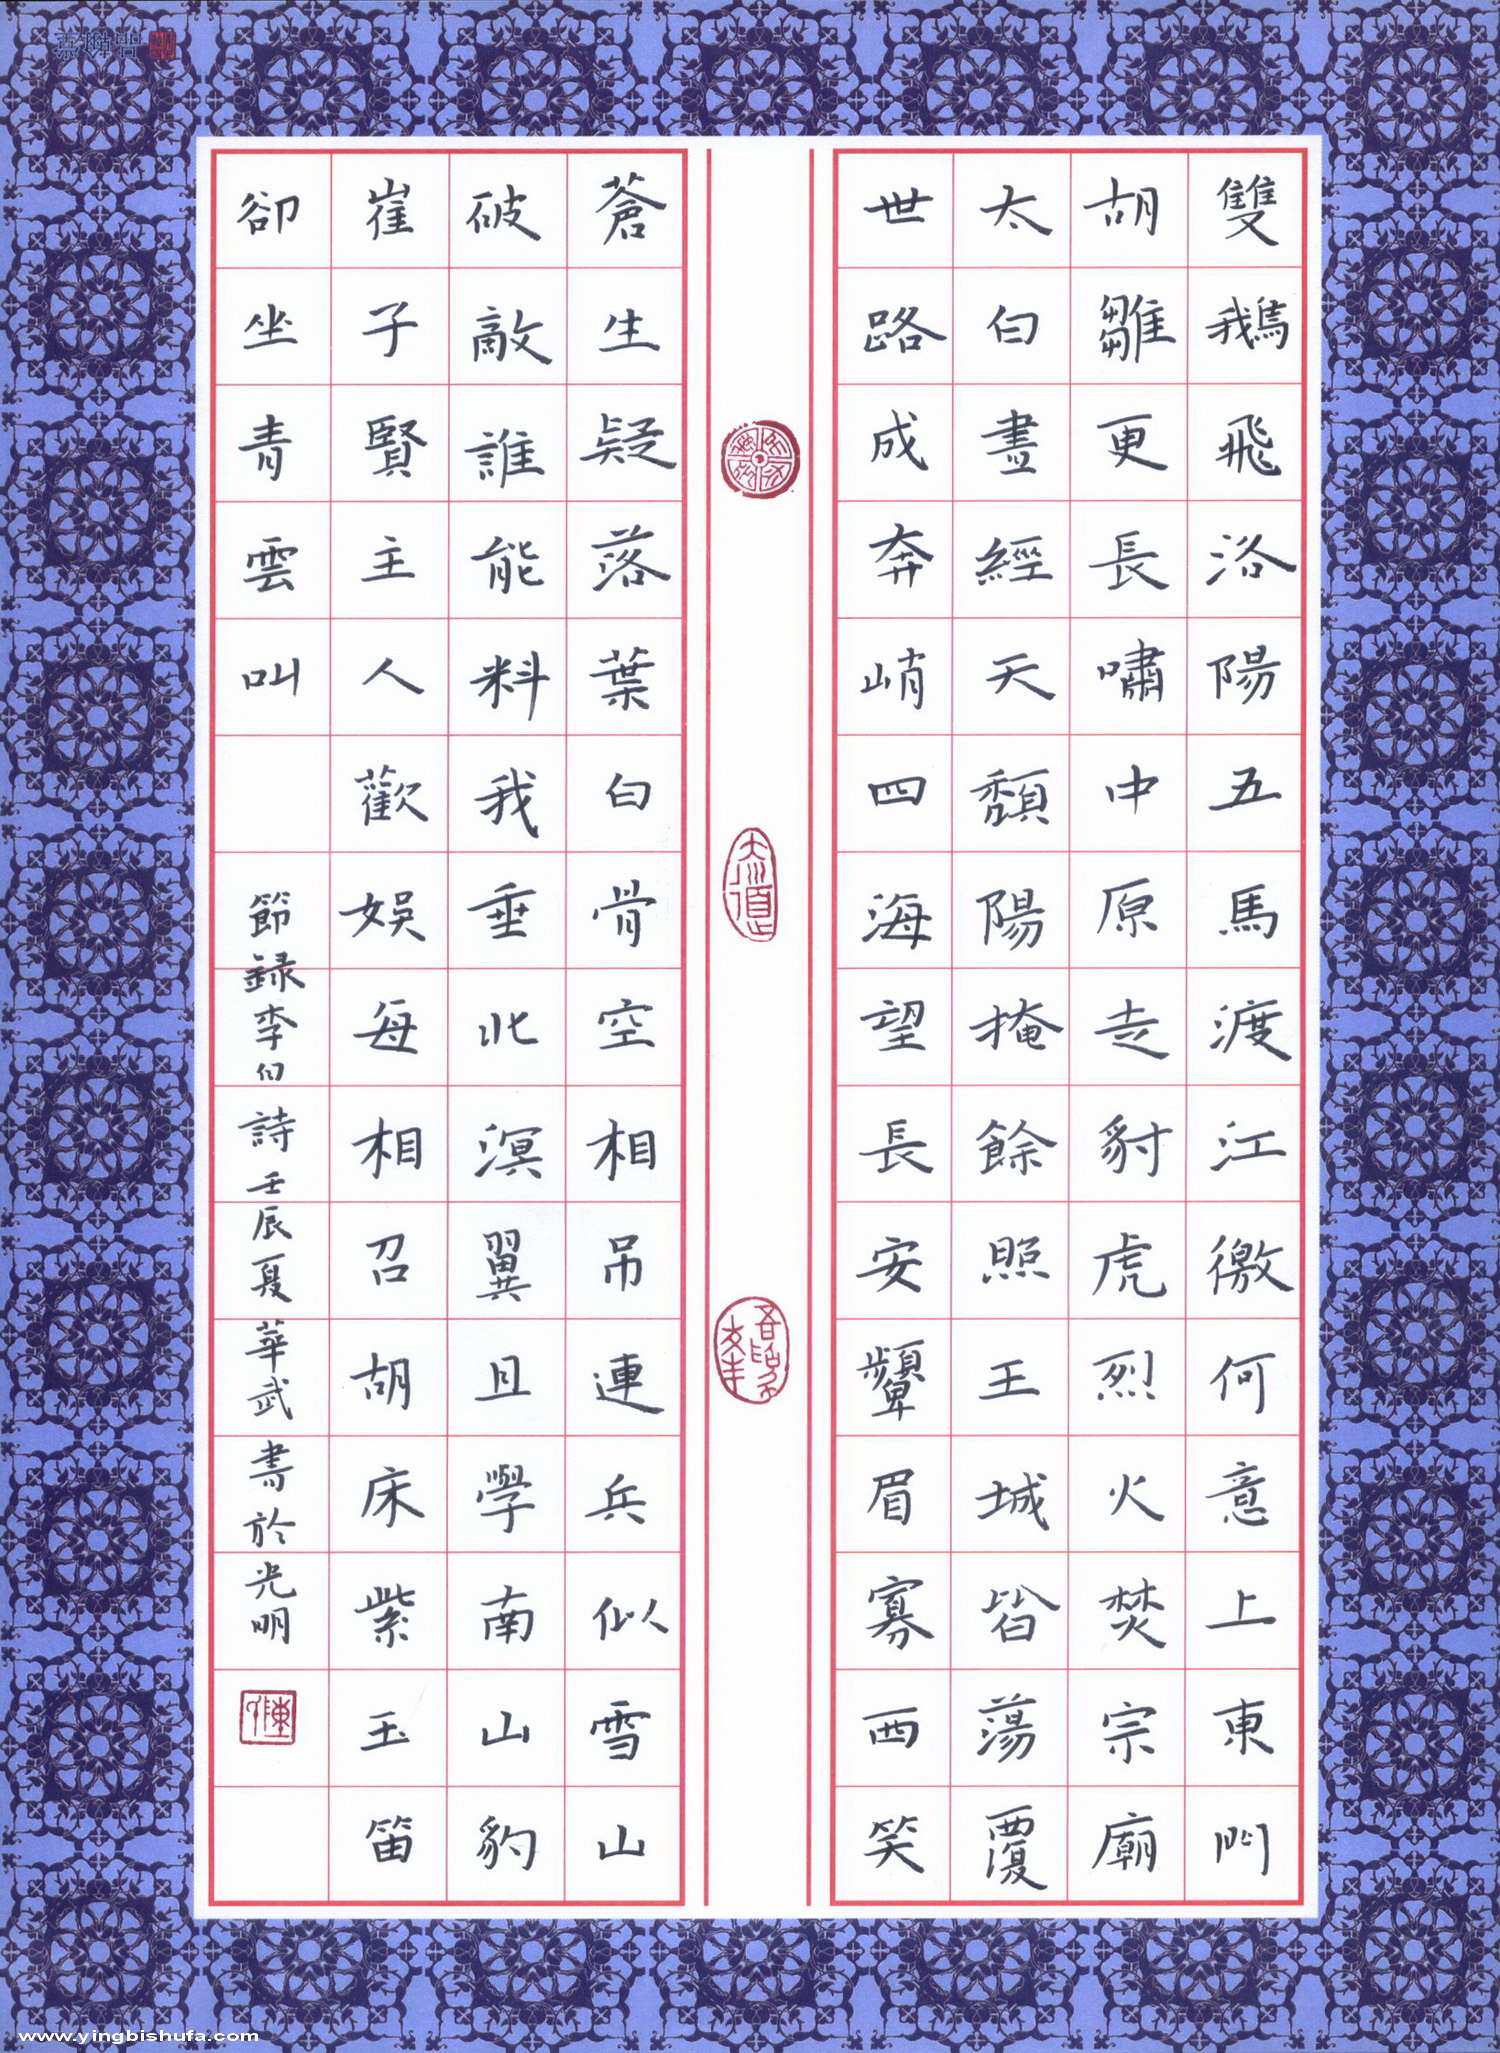 雙鵝飛洛陽五馬渡江徼何意上東門
胡雛更長嘯中原走豺虎烈火焚宗廟
太白晝經天頹陽掩餘照王城皆蕩覆
世路成奔峭四海望長安顰眉寡西笑
蒼生疑落葉白骨空相吊連兵似雪山
破敵誰能料我垂北溟翼且學南山豹
崔子賢主人歡娛每相召胡床紫玉笛
卻坐青雲叫
節録李白詩壬辰夏華武書於光明
www.yingbishufa.com